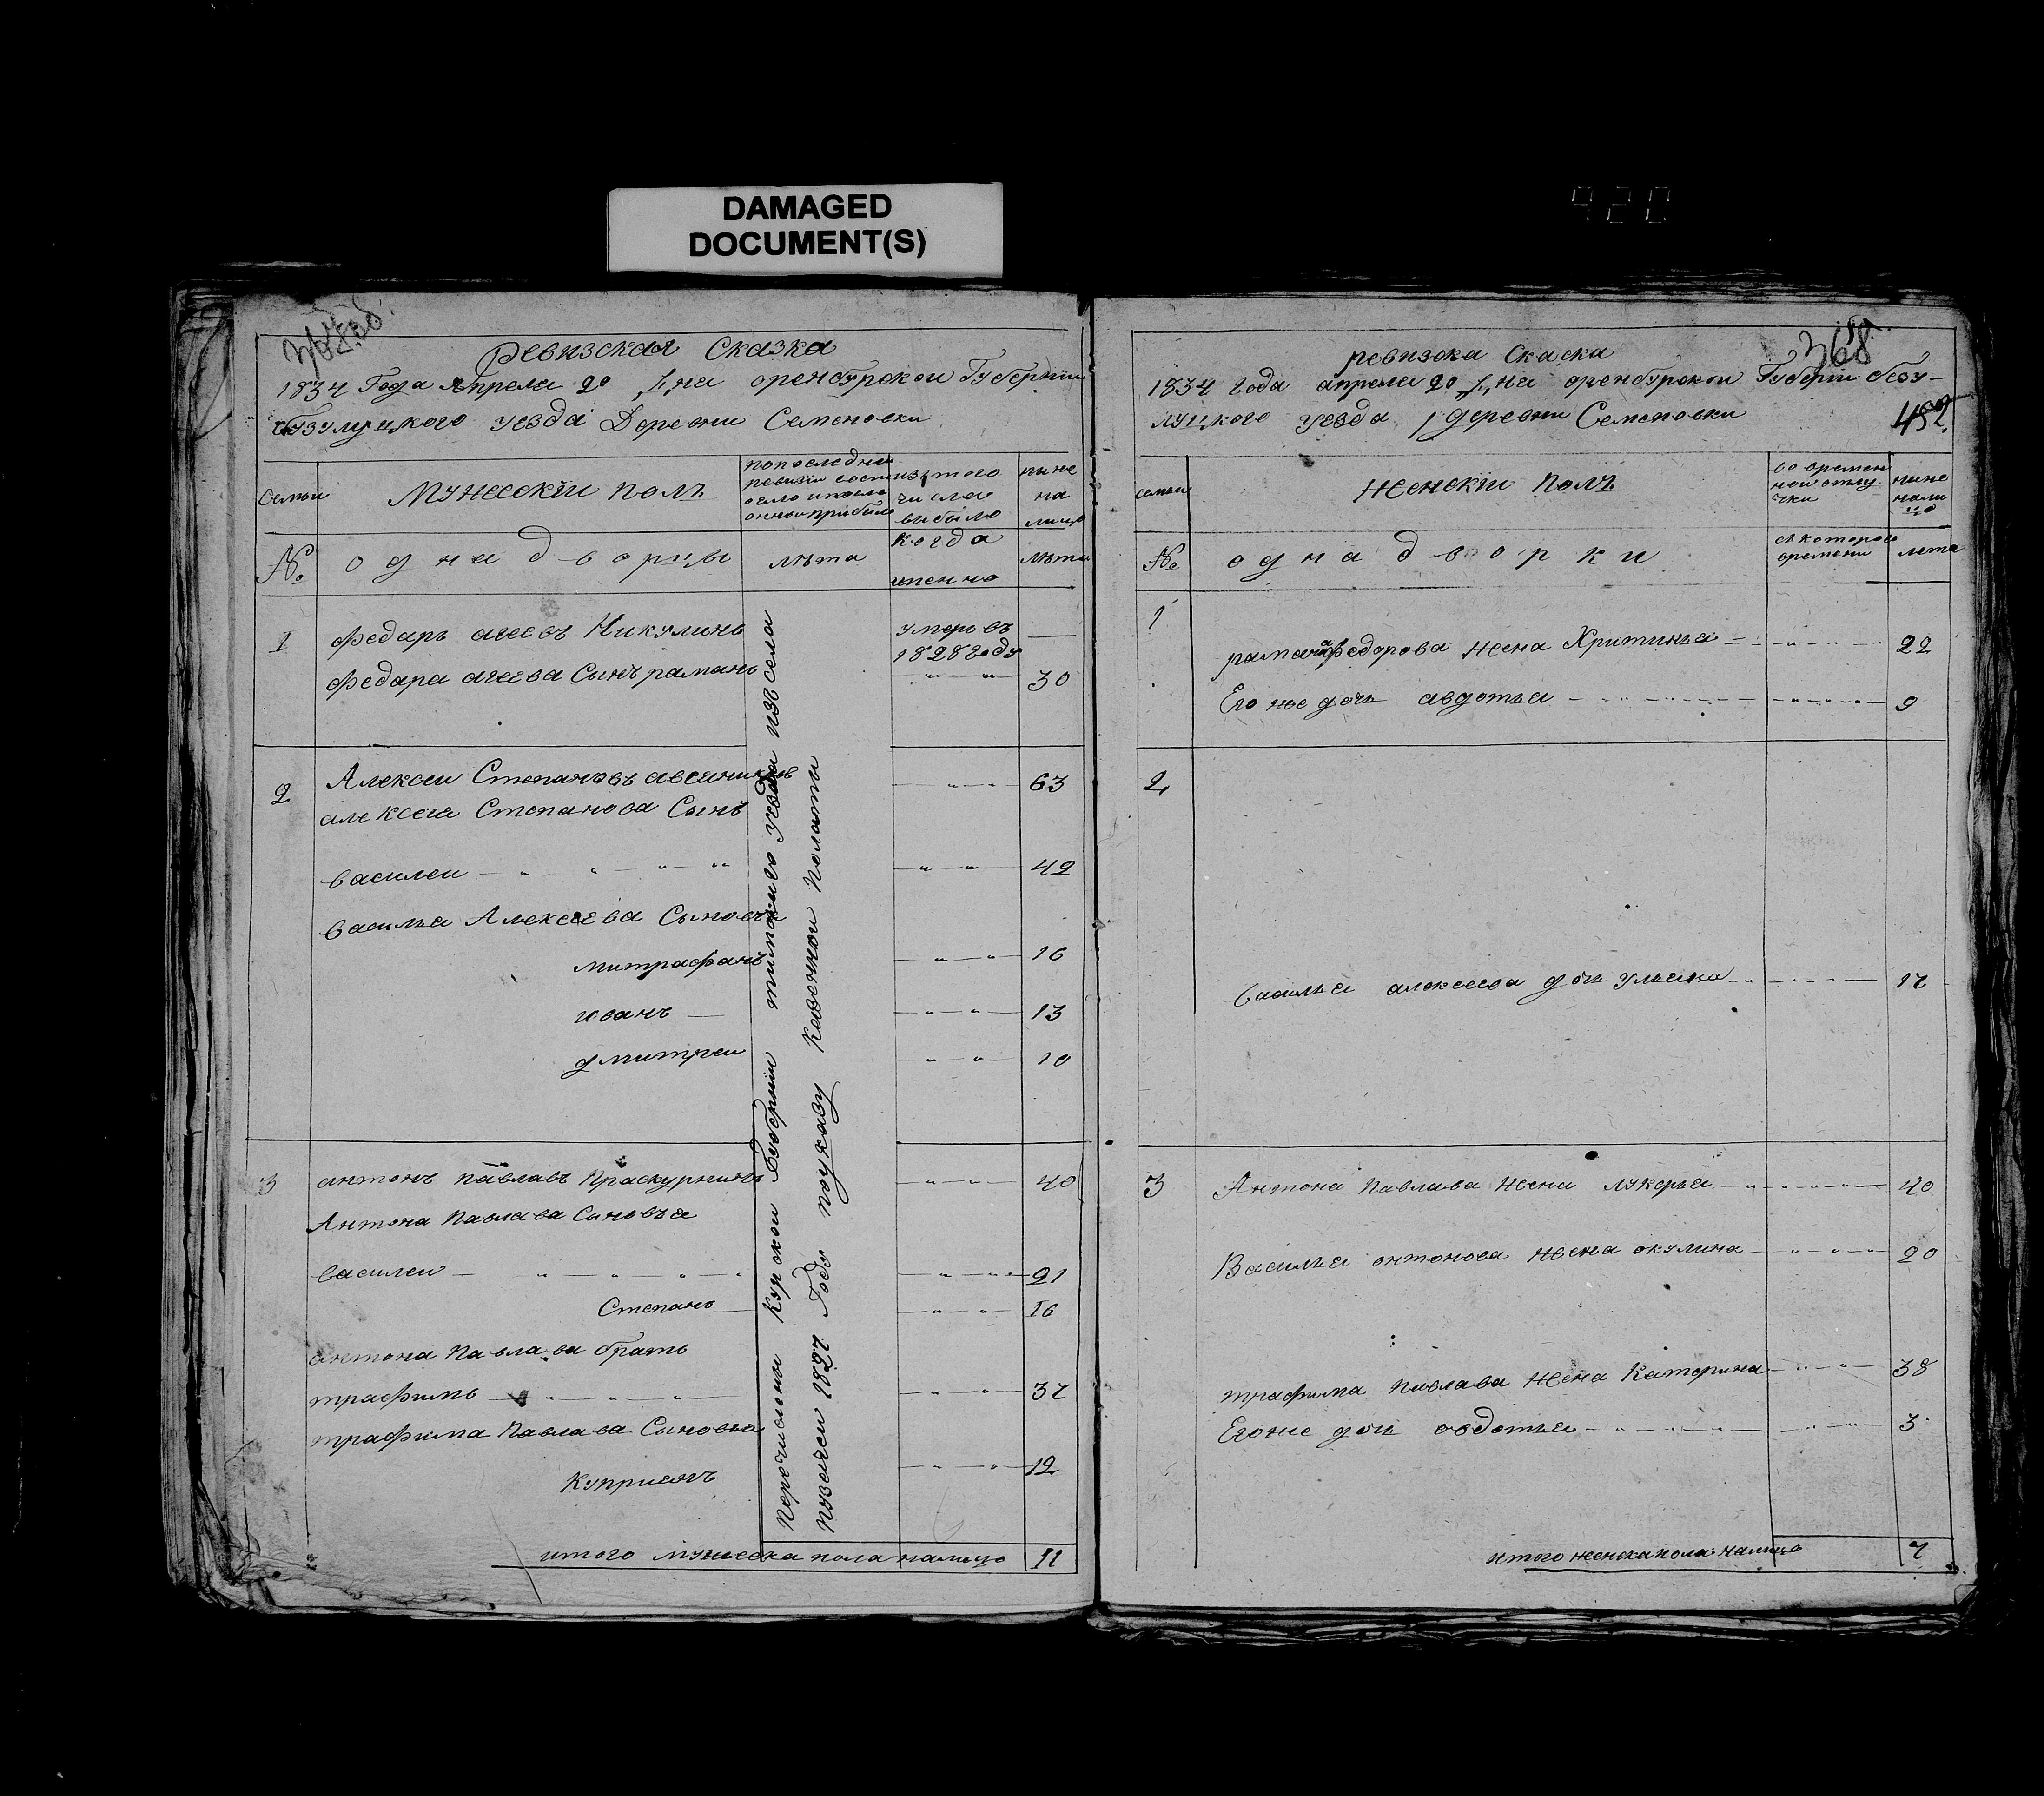 DAMAGED
DOCUMENT(S)
920
Ревизская Сказка
1834 Года Апреля 20 Дна оренбурской Губернии
бузулуцкого уезда Деревни Семеновки
Семьи
Мужескiй полъ
попоследней
ревизiи состо
ояло и после
онной прибыло
изтого
числа
выбыло
ныне
на
лицо
№
однадворцы
лѣта
когда
именно
лѣта
1
Федаръ агеевъ Никулинъ
умеръ въ
1828 году
Федара агеева Сынъ раманъ
30
2
Алексеи Степановъ
63
алексея Степанова Сынъ
василеи
42
василья Алексеева Сыновья
митрафанъ
16
иванъ
13
дмитреи
10
3
антонъ павлавъ Праскурнинъ
40
Антона Павлава Сыновья
василеи
21
Степанъ
16
антона Павлава братъ
трафимъ
37
трафима Павлава Сыновья
Куприянъ
12
Перечислены Курской Губернии тимского уезда изъ села
пузачеи 1827 Году поуказу Казенной Полаты
итого мужеска пола налицо 11
368
ревизска Скаска
1834 года апреля 20 Дна оренбурской Губернiи безу-
луцкого уезда деревни Семеновки
452
семьи
Женскiй Полъ
во времен
ной отлу
чки
ныне
нали
цо
№
однадворки
съ которого
времени
лета
1
рамана Федорова жена Хритинья
22
Его же дочь авдотья
9
2
василья алексеева дочь ульяна
17
3
Антона Павлава жена лукерья
40
Василья онтонова жена окулина
20
трафима Павлава жена Катерина
38
Егоже дочь овдотья
3
итого женска пола налицо
7